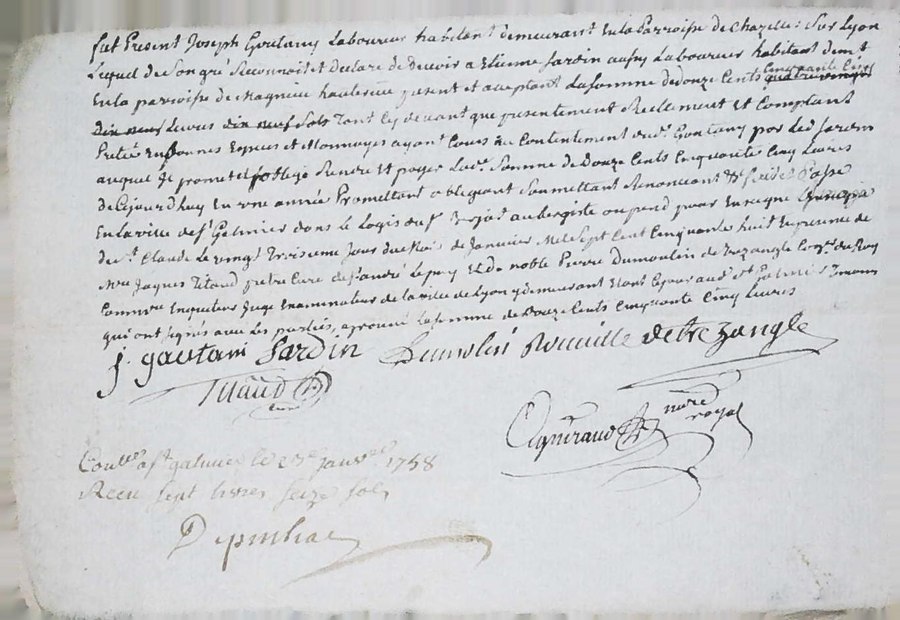 fut Present Joseph Goutany Laboureur habitant demeurant En la Parroisse de Chazelle: Sur Lyon
Lequel de Son gré Reconnoit et Declare de Devoir a Etienne Jardin aussy Laboureur habitant demt
En la parroisse de present et acceptant La Somme de douze Cents Cinquante Cinq quatre vingt
dix neuf Livres dix neuf Sols tant Cy devant que presentement Reellement Et Comptant
En bonnes Especes et Monnoyes ayant Cours au Contentement dud. Goutany par Led Jardin
auquel Il promet et soblige Rendre Et payer Lade. Somme de Douze Cents Cinquante Cinq Livres
De Cejourdhuy En une année Promettant obligeant Soumettant Renonceant &c fait et Passé
En La ville de st Galmier dans le Logis du sr aubergiste ou pend pour Enseigne
de st Claude Le vingt Troisieme Jour du Mois de Janvier Mil Sept Cent Cinquante huit En presence de
Mre Jaques Titaud pretre Curé de st andré Le puy Et de noble Pierre Dumoulin de trezangle du Roy
Enqueteur Juge Examinateur de la ville de Lyon y demeurant Etant Ce jour aud st Galmier Temoins
qui ont signés avec Les parties, aprouvé La somme de Douze Cents Cinquante Cinq Livres
J. gautani Jardin Dumolin Rouville de trezangle
Titaud
curé
nore
royal
Contle a st galmier le 23e janvier 1758
Receu sept livres seize sols